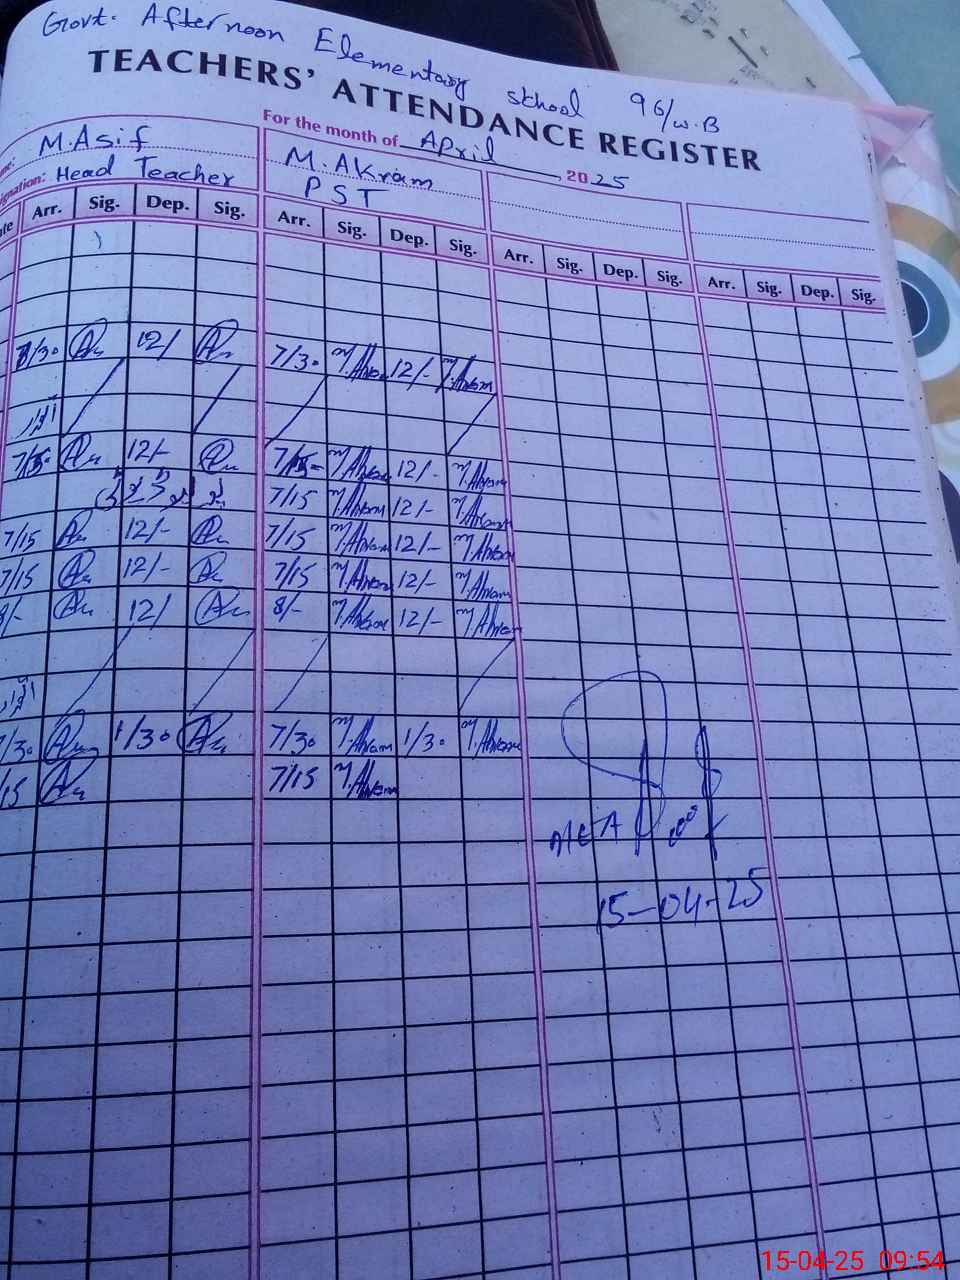 Govt. Afternoon Elementary school 96/w.B
TEACHERS' ATTENDANCE REGISTER
For the month of April, 2025
M.Asif M.Akram
Head Teacher PST
Arr. Sig. Dep. Sig. Arr. Sig. Dep. Sig. Arr. Sig. Dep. Sig. Arr. Sig. Dep. Sig.
8/30 12/ 7/30 M.Akram 12/- M.Akram
اتوار
12/- M.Akram 12/- M.Akram
7/15 M.Akram 12/- M.Akram
7/15 12/- 7/15 M.Akram 12/- M.Akram
7/15 12/- 7/15 M.Akram 12/- M.Akram
8/- 12/ 8/- M.Akram 12/- M.Akram
اتوار
7/30 1/30 7/30 M.Akram 1/30 M.Akram
7/15 M.Akram
15-04-25
15-04-25 09:54